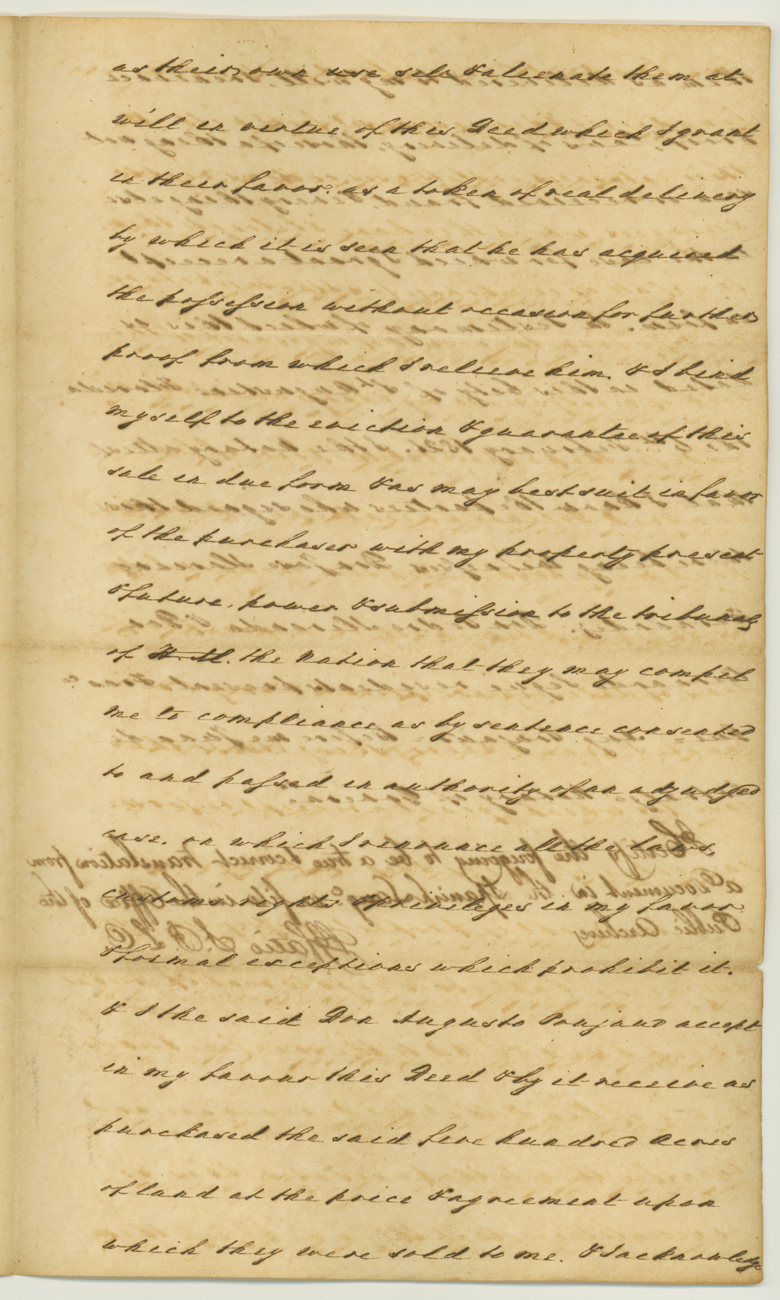 as their own use sell & alienate them at
will in virtue of this Deed which I grant
in their favor. as a token of real delivery
by which it is seen that he has acquired
the possession without occasion for further
proof from which I relieve him. & I bind
myself to the eviction & guarantee of this
sale in due form & as may best suit in favor
of the purchaser with my property present
& future. power & submission to the tribunals
of H. M. the Nation that they may compel
me to compliance as by sentence consented
to and passed in authority of an adjudged
case. on which I renounce all the laws
customs rights & privileges in my favor
& formal exceptions which prohibit it.
& I the said Don Augusto Poujaud accept
in my favour this Deed & by it receive as
purchased the said five hundred Acres
of land at the price & agreement upon
which they were sold to me. & I acknowledge